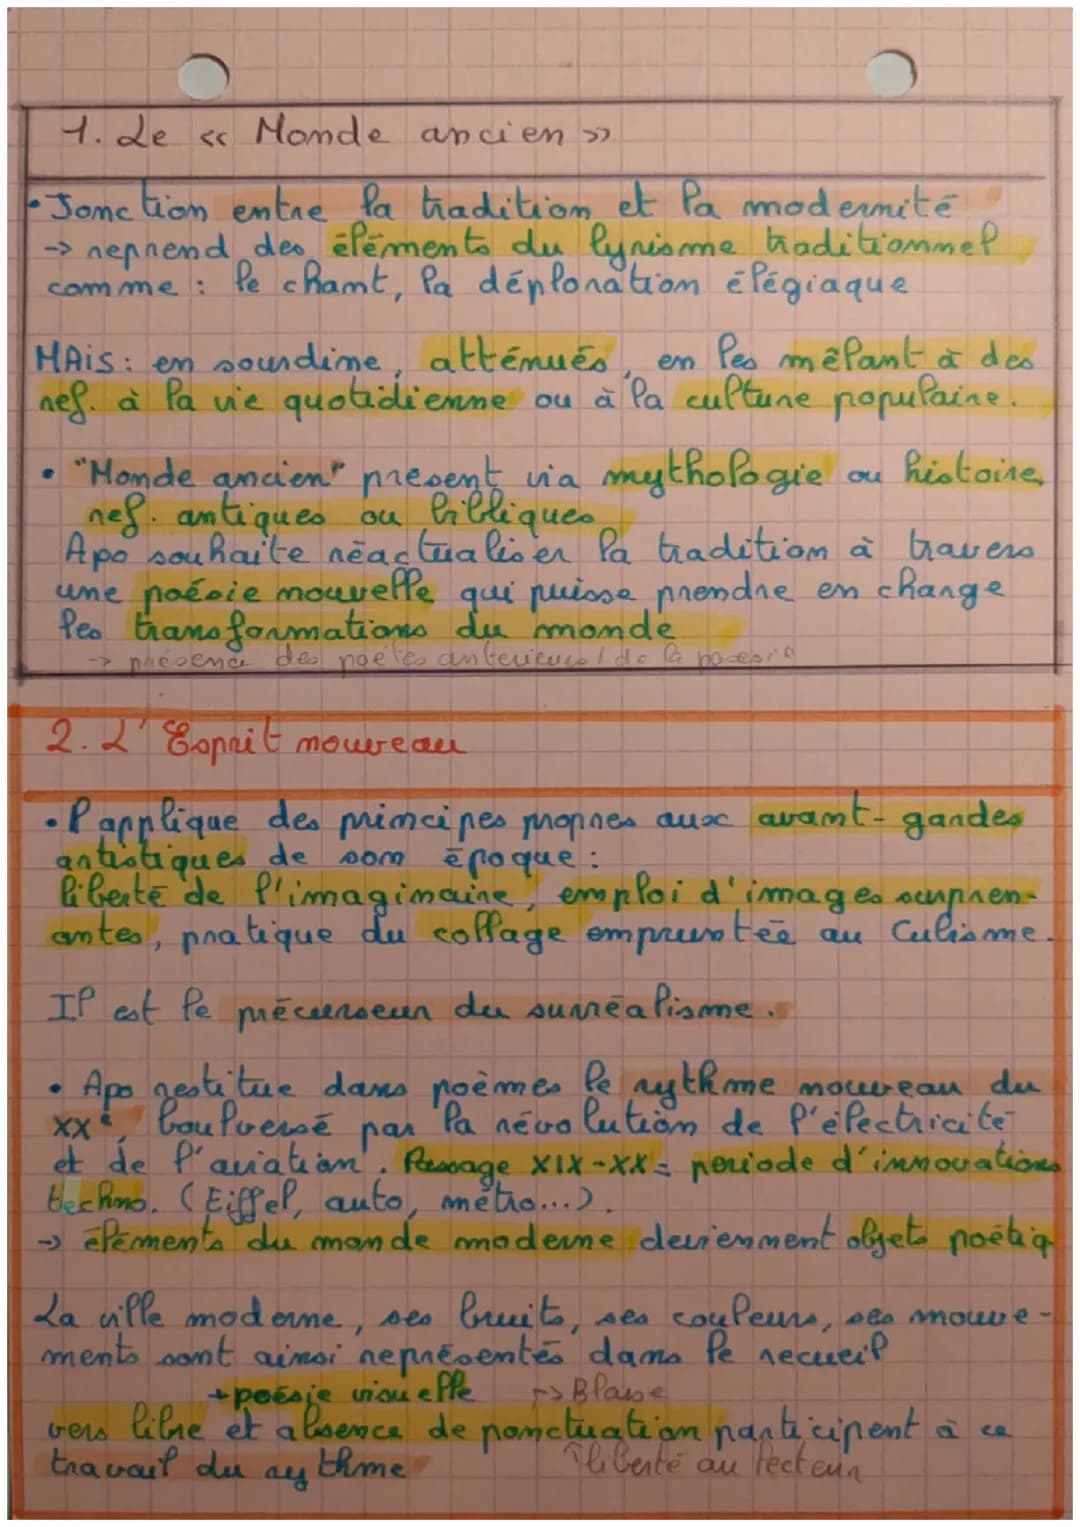 1. Le « Monde ancien »
• Jonction entre la tradition et la modernité
-> reprend des éléments du lyrisme traditionnel
comme : le chant, la déploration élégiaque
MAiS : en sourdine, atténués, en les mêlant à des
ref. à la vie quotidienne ou à la culture populaire.
• "Monde ancien" present via mythologie ou histoire,
ref. antiques ou bibliques
Apo souhaite réactualiser la tradition à travers
une poésie nouvelle qui puisse prendre en charge
les transformations du monde
-> présence des poètes anterieurs / de la poesie
2. L' Esprit nouveau
• Il applique des principes propres aux avant-gardes
artistiques de son époque :
liberté de l'imaginaire, emploi d'images surpren-
antes, pratique du collage empruntée au Cubisme.
Il est le précurseur du surréalisme.
• Apo restitue dans poèmes le rythme nouveau du
XXe, bouleversé par la révolution de l'électricité
et de l'aviation. Passage XIX-XX = periode d'innovations
techno. (Eiffel, auto, métro...).
-> éléments du monde moderne deviennent objets poétiq
La ville moderne, ses bruits, ses couleurs, ses mouve-
ments sont ainsi représentés dans le recueil
+poésie visuelle -> Blaise
vers libre et absence de ponctuation participent à ce
travail du rythme liberté au lecteur